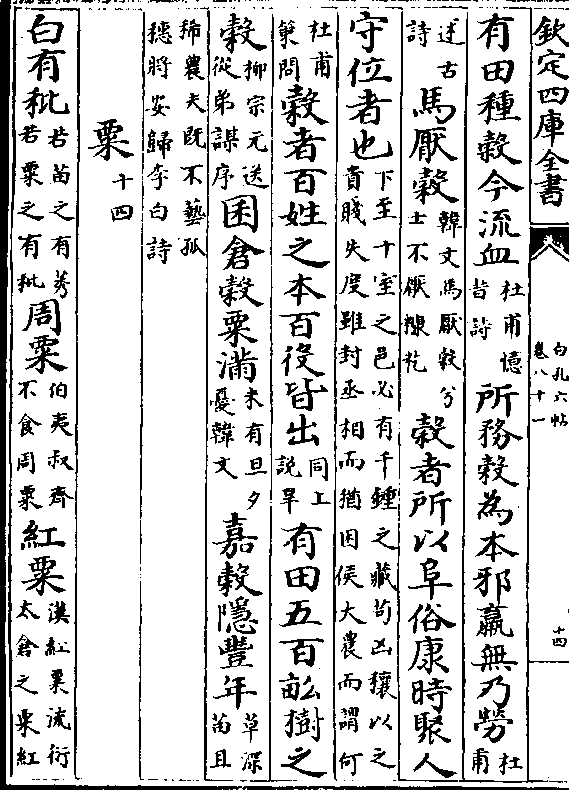 欽定四庫全書
白孔六帖
卷八十一
十四
有田種穀今流血杜甫憶昔詩所務穀為本邪贏無乃勞杜甫
述古詩馬厭穀韓文馬厭穀兮士不厭糠籺穀者所以阜俗康時聚人
守位者也下至十室之邑必有千鍾之藏苟凶穰以之貴賤失度雖封丞相而猶困侯大農而謂何
杜甫策問穀者百姓之本百役皆出同上說旱有田五百畝樹之
穀柳宗元送從弟謀序囷倉穀粟滿未有旦夕憂韓文嘉穀隱豐年草深苗且
稀農夫既不藝孤穗將安歸李白詩
粟十四
白有秕若苗之有莠若粟之有秕周粟伯夷叔齊不食周粟紅粟漢紅粟流衍太倉之粟紅